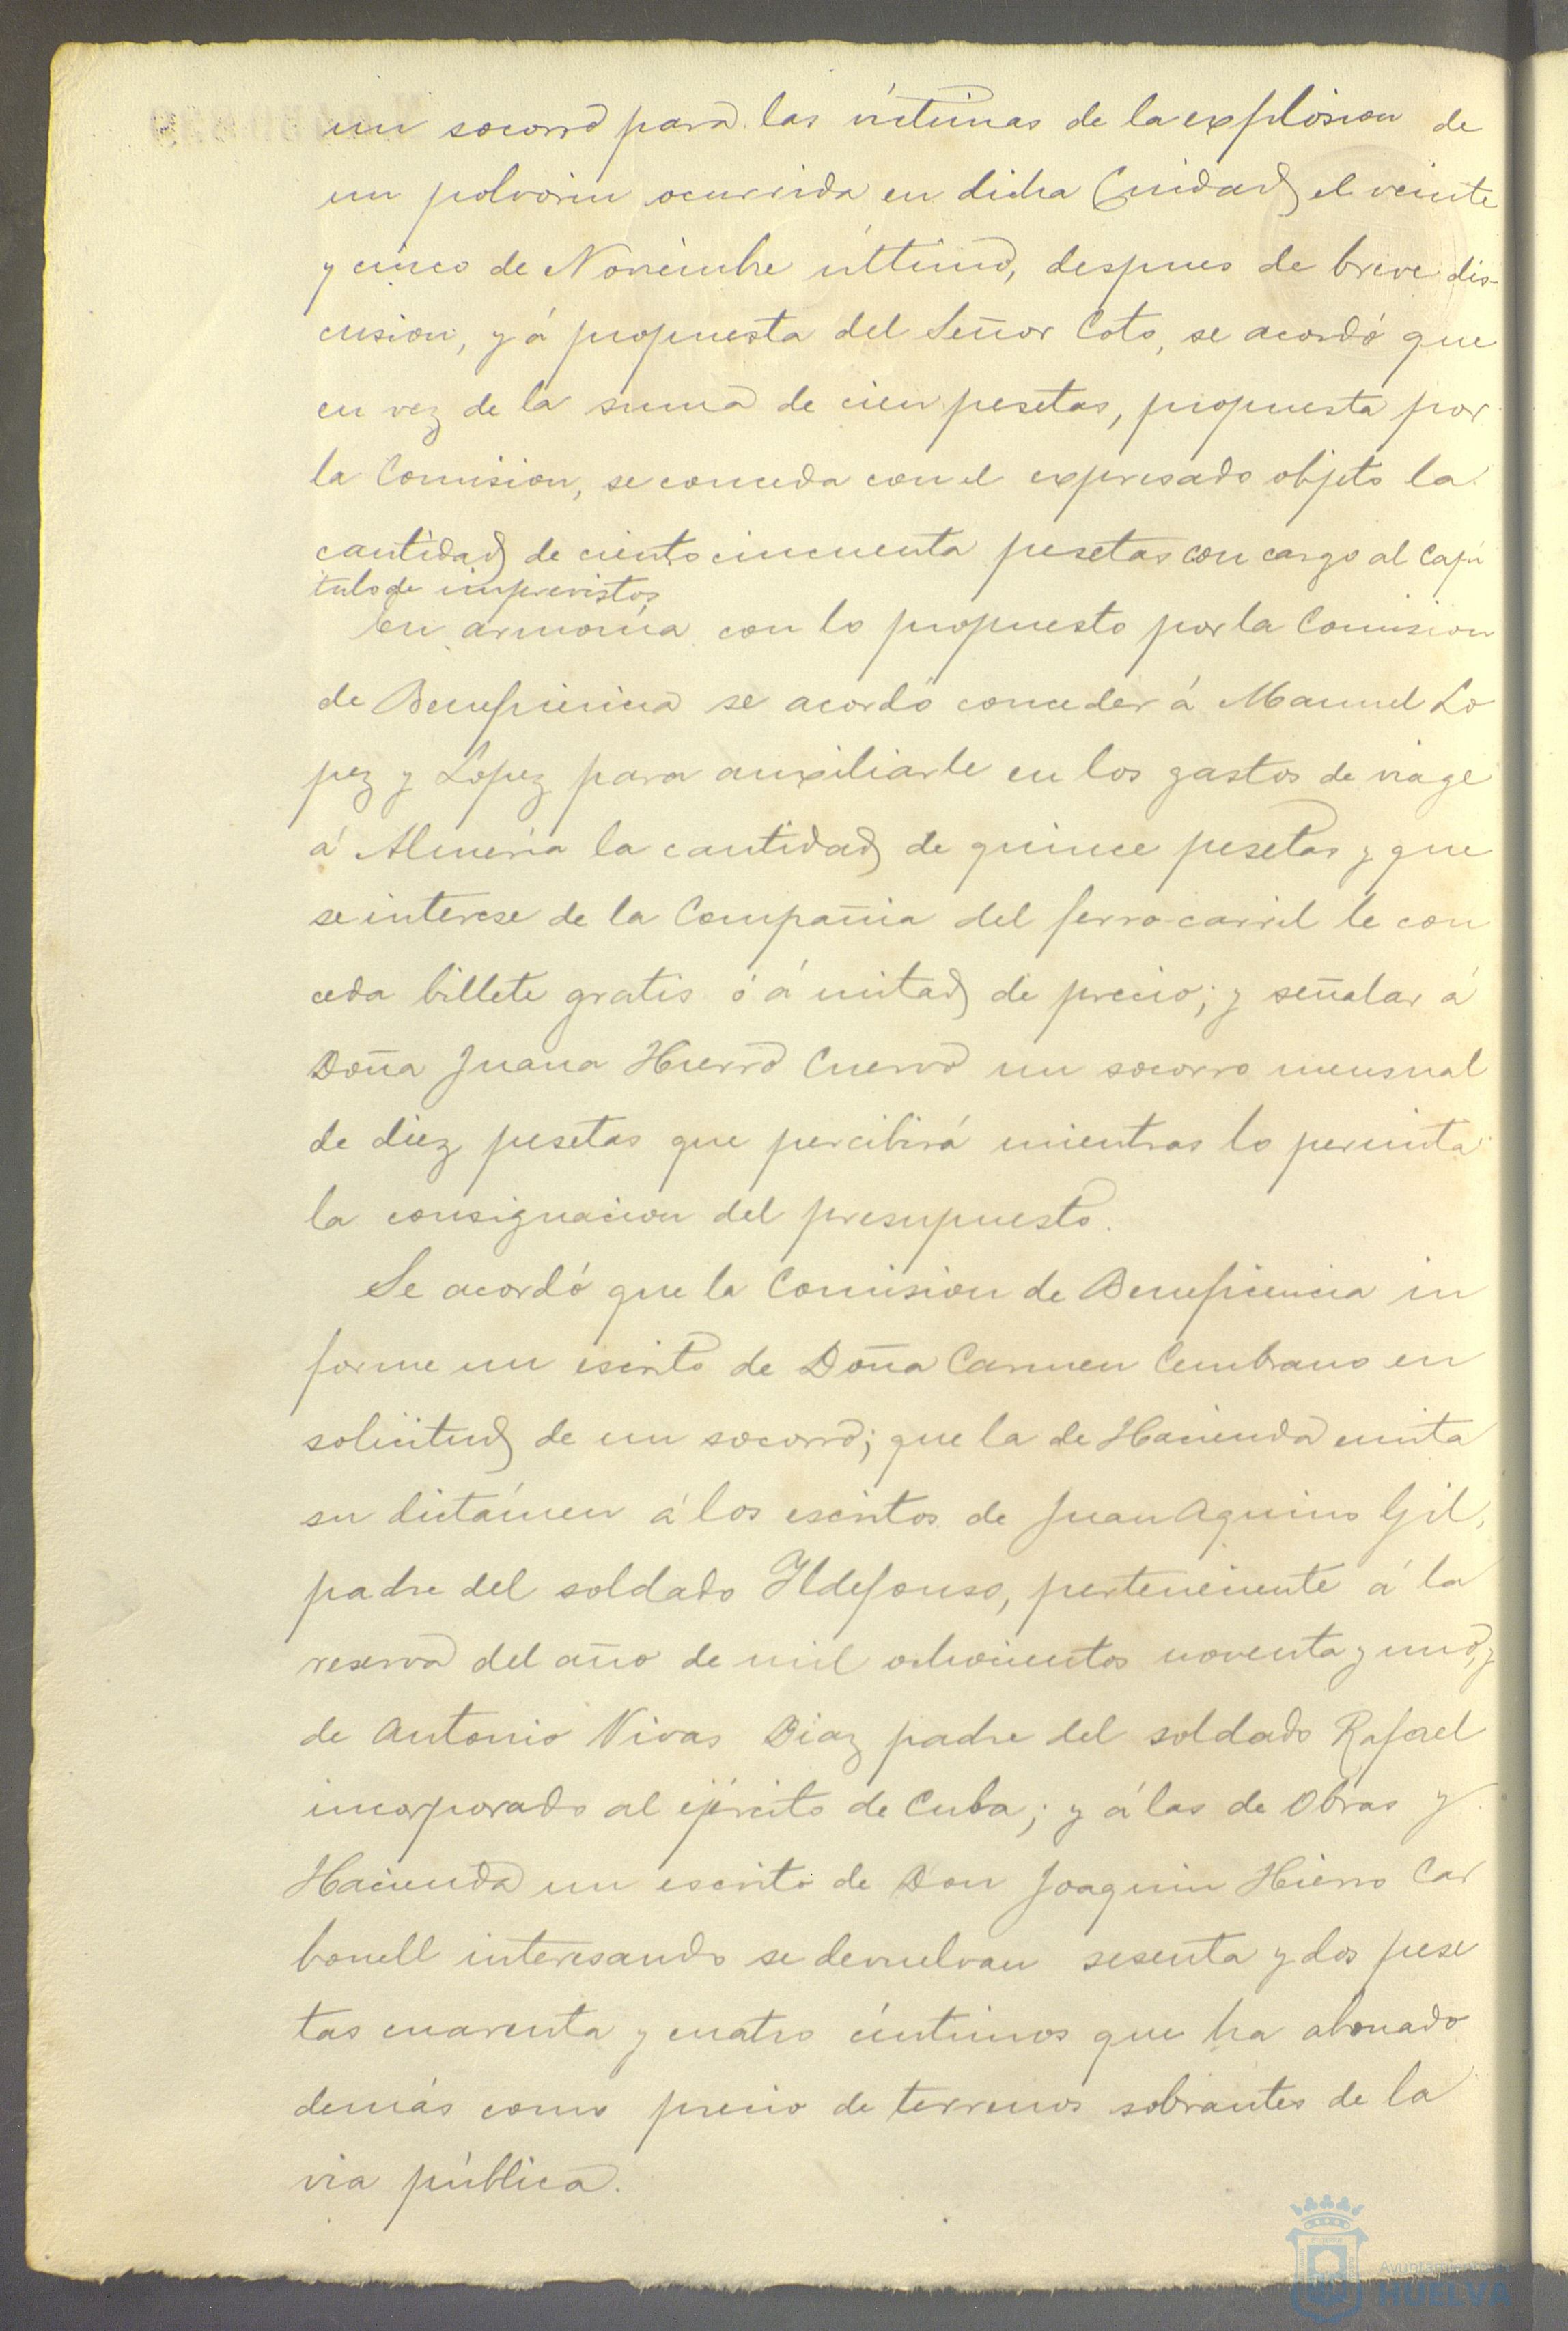 un socorro para las víctimas de la explosion de
un polvorin ocurrida en dicha Ciudad el veinte
y cinco de Noviembre último, despues de breve dis-
cusion, y á propuesta del Señor Coto, se acordó que
en vez de la suma de cien pesetas, propuesta por
la Comision, se conceda con el expresado objeto la
cantidad de ciento cincuenta pesetas con cargo al Capí
tulo de imprevistos,
En armonía con lo propuesto por la Comision
de Beneficencia se acordó conceder á Manuel Lo
pez y Lopez para auxiliarle en los gastos de viage
á Almería la cantidad de quince pesetas y que
se interese de la Compañia del ferro-carril le con
ceda billete gratis ó á mitad de precio; y señalar á
Doña Juana Hierro Cuervo un socorro mensual
de diez pesetas que percibirá mientras lo permita
la consignacion del presupuesto.
Se acordó que la Comision de Beneficencia in
forme un escrito de Doña Carmen Cembrano en
solicitud de un socorro; que la de Hacienda emita
su dictámen á los escritos de Juan Aquino Gil,
padre del soldado Ildefonso, perteneciente á la
reserva del año de mil ochocientos noventa y uno, y
de Antonio Vivas Diaz padre del soldado Rafael
incorporado al ejército de Cuba; y á las de Obras y
Hacienda un escrito de Don Joaquin Hierro Car
bonell interesando se devuelvan sesenta y dos pese
tas cuarenta y cuatro céntimos que ha abonado
demás como precio de terrenos sobrantes de la
via pública.
Ayuntamiento
HUELVA